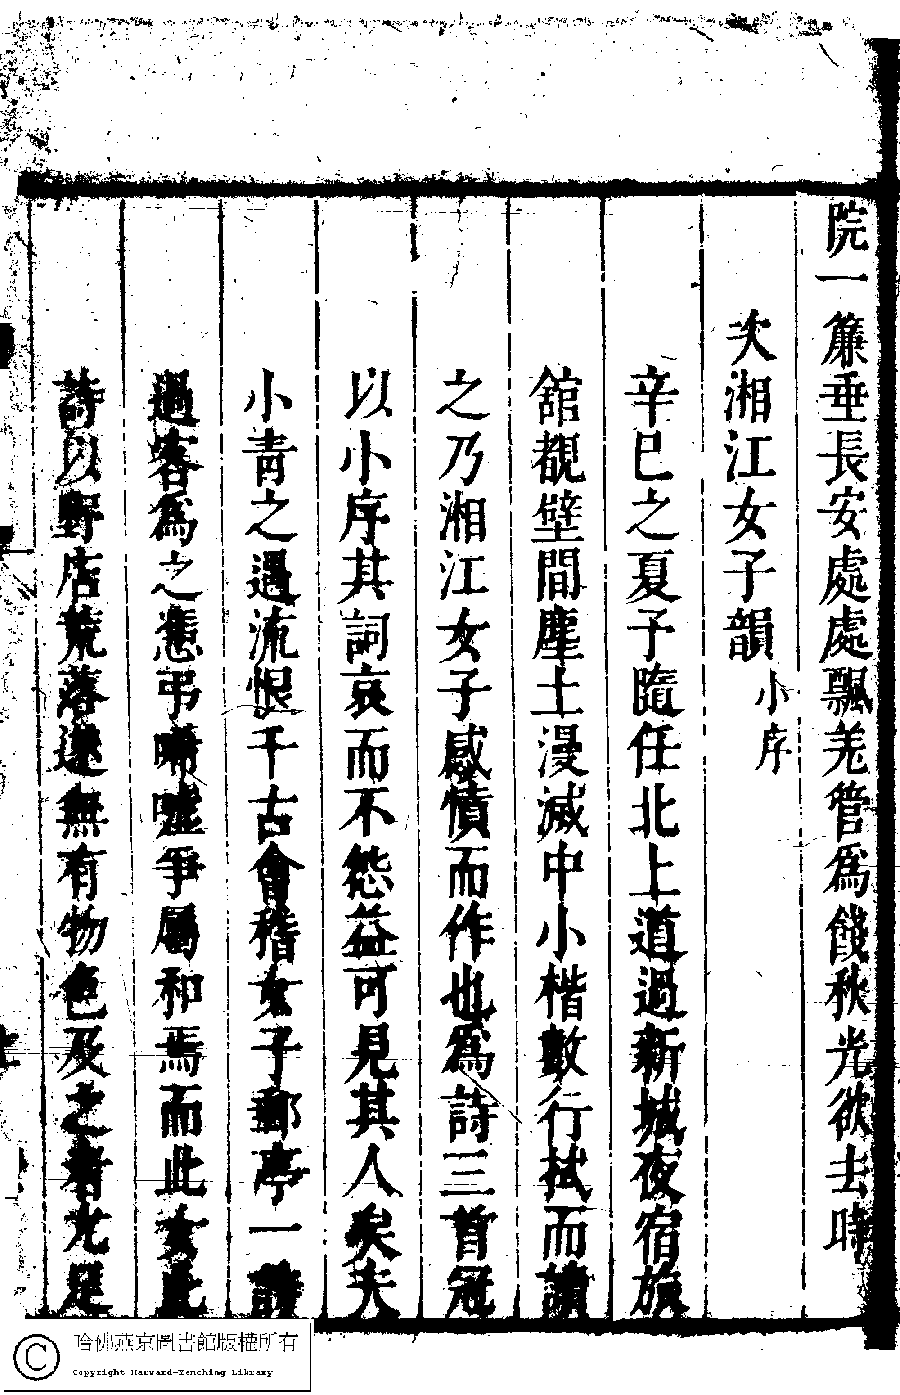 院一簾垂長安處處飄羌管爲餞秋光欲去時
次湘江女子韻小序
辛巳之夏予隨任北上道過新城夜宿旅
舘覩壁間塵土漫滅中小楷數行拭而讀
之乃湘江女子感憤而作也爲詩三首冠
以小序其詞哀而不怨益可見其人矣夫
小青之遇流恨千古會稽女子郵亭一
過客爲之憑弔唏噓爭屬和焉而此女此
詩以野店荒落邈無有物色及之者尤足
哈佛燕京圖書館版權所有
Copyright Harvard-Yenching Library